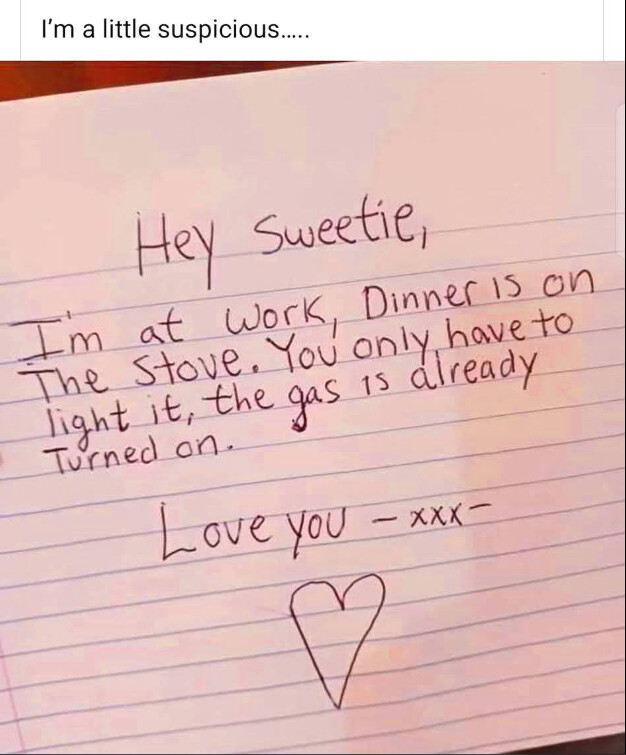 I'm a little suspicious.....
Hey Sweetie,
I'm at work, Dinner is on
The Stove. You only have to
light it, the gas is already
Turned on.
Love you - xxx-